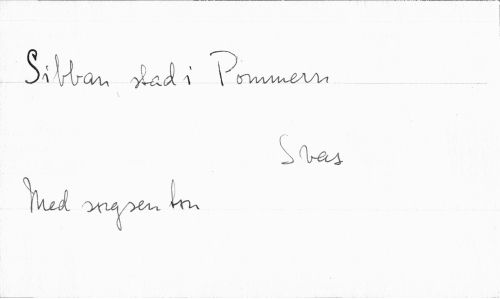 Sibban stad i Pommern
Svas
Med sorgsen ton